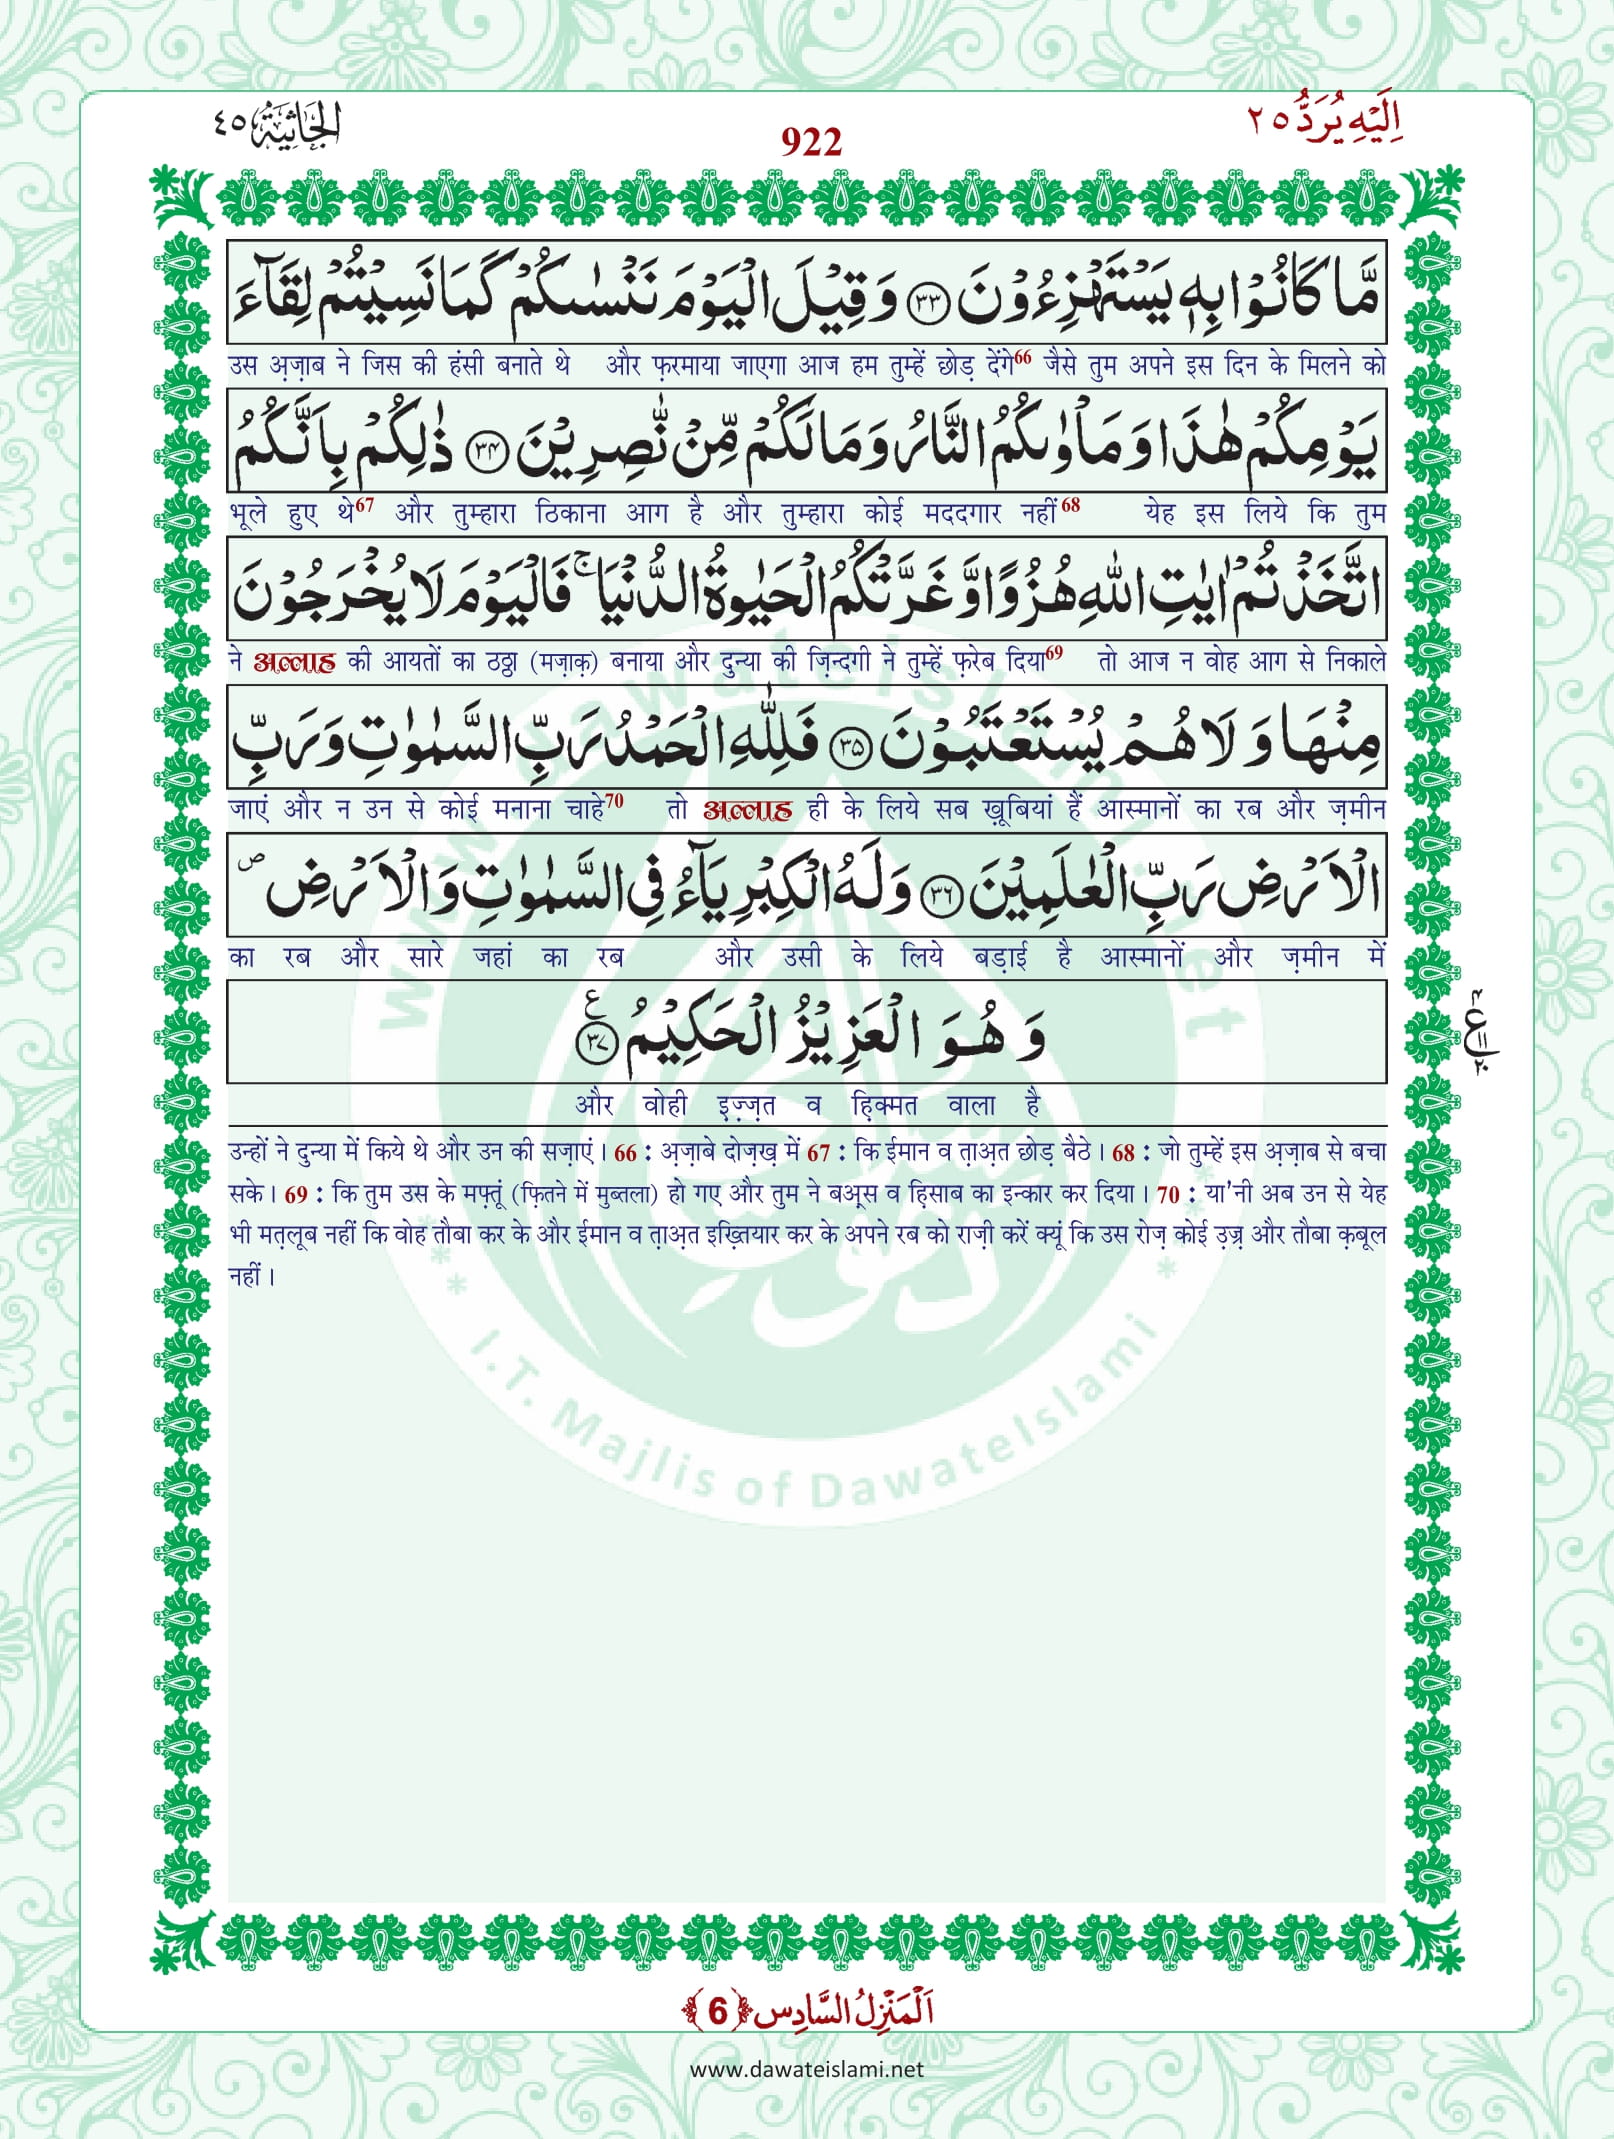 اِلَیْهِ یُرَدُّ ٢٥
922
الجَاثِيَة ٤٥
مَّا كَانُوْا بِهٖ یَسْتَهْزِءُوْنَ ۝۳۳ وَ قِیْلَ الْیَوْمَ نَنْسٰىكُمْ كَمَا نَسِیْتُمْ لِقَآءَ
उस अ़ज़ाब ने जिस की हंसी बनाते थे और फ़रमाया जाएगा आज हम तुम्हें छोड़ देंगे66 जैसे तुम अपने इस दिन के मिलने को
یَوْمِكُمْ هٰذَا وَ مَاْوٰىكُمُ النَّارُ وَ مَا لَكُمْ مِّنْ نّٰصِرِیْنَ ۝۳۴ ذٰلِكُمْ بِاَنَّكُمُ
भूले हुए थे67 और तुम्हारा ठिकाना आग है और तुम्हारा कोई मददगार नहीं68 येह इस लिये कि तुम
اتَّخَذْتُمْ اٰیٰتِ اللّٰهِ هُزُوًا وَّ غَرَّتْكُمُ الْحَیٰوةُ الدُّنْیَاۚ فَالْیَوْمَ لَا یُخْرَجُوْنَ
ने अल्लाह की आयतों का ठठ्ठा (मज़ाक़) बनाया और दुन्या की ज़िन्दगी ने तुम्हें फ़रेब दिया69 तो आज न वोह आग से निकाले
مِنْهَا وَ لَا هُمْ یُسْتَعْتَبُوْنَ ۝۳۵ فَلِلّٰهِ الْحَمْدُ رَبِّ السَّمٰوٰتِ وَ رَبِّ
जाएं और न उन से कोई मनाना चाहे70 तो अल्लाह ही के लिये सब ख़ूबियां हैं आस्मानों का रब और ज़मीन
الْاَرْضِ رَبِّ الْعٰلَمِیْنَ ۝۳۶ وَ لَهُ الْكِبْرِیَآءُ فِی السَّمٰوٰتِ وَ الْاَرْضِ۪
का रब और सारे जहां का रब और उसी के लिये बड़ाई है आस्मानों और ज़मीन में
وَ هُوَ الْعَزِیْزُ الْحَكِیْمُ ۝۳۷ ع
और वोही इ़ज़्ज़त व ह़िक्मत वाला है
उन्हों ने दुन्या में किये थे और उन की सज़ाएं। 66 : अ़ज़ाबे दोज़ख़ में 67 : कि ईमान व त़ाअ़त छोड़ बैठे। 68 : जो तुम्हें इस अ़ज़ाब से बचा
सके। 69 : कि तुम उस के मफ़्तूं (फ़ितने में मुब्तला) हो गए और तुम ने बअ़्स व ह़िसाब का इन्कार कर दिया। 70 : या'नी अब उन से येह
भी मत़लूब नहीं कि वोह तौबा कर के और ईमान व त़ाअ़त इख़्तियार कर के अपने रब को राज़ी करें क्यूं कि उस रोज़ कोई उ़ज़्र और तौबा क़बूल
नहीं।
www.dawateislami.net
I.T. Majlis of DawateIslami
اَلْمَنْزِلُ السَّادِس ﴿6﴾
www.dawateislami.net